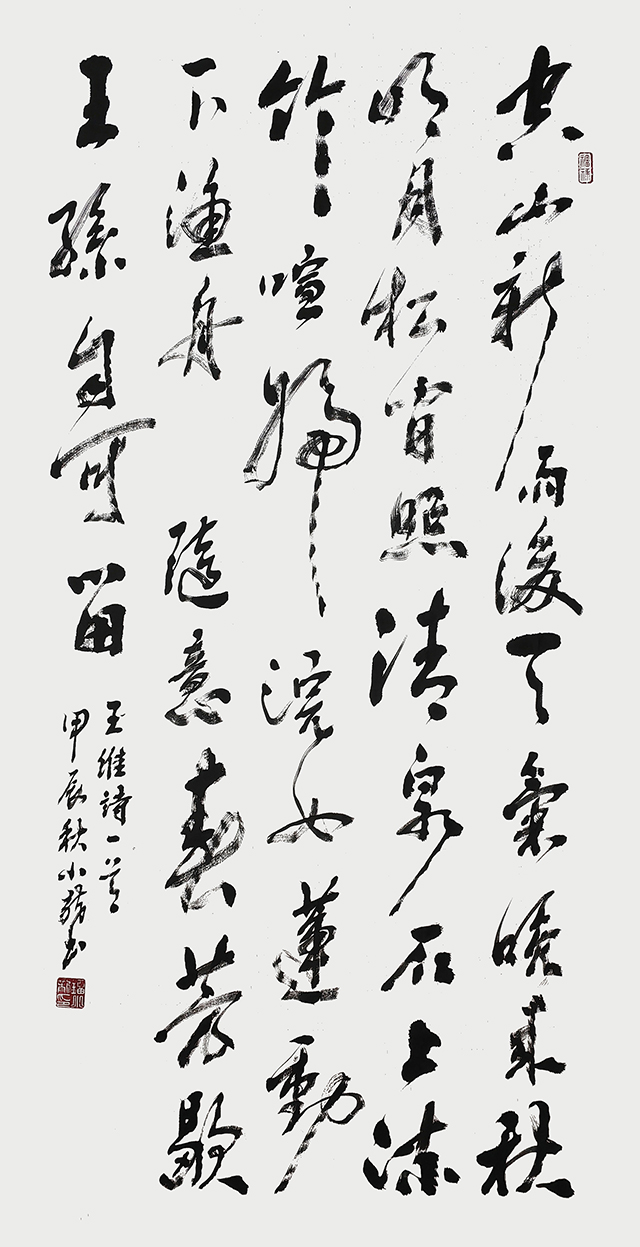 空山新雨後天氣晚来秋
明月松間照清泉石上流
竹喧歸浣女蓮動
下漁舟隨意春芳歇
王孫自可留
王維詩一首
甲辰秋小书